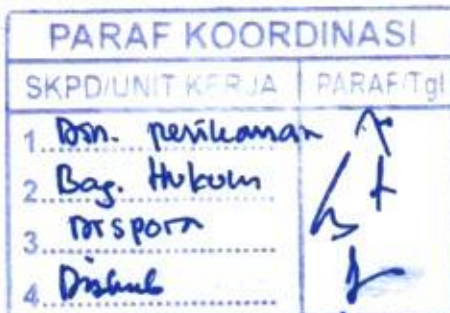 PARAF KOORDINASI
SKPD/UNIT KERJA PARAF/Tgl
1. Dsn. perikanan
2. Bag. Hukum
3. DISPORA
4. Dishub